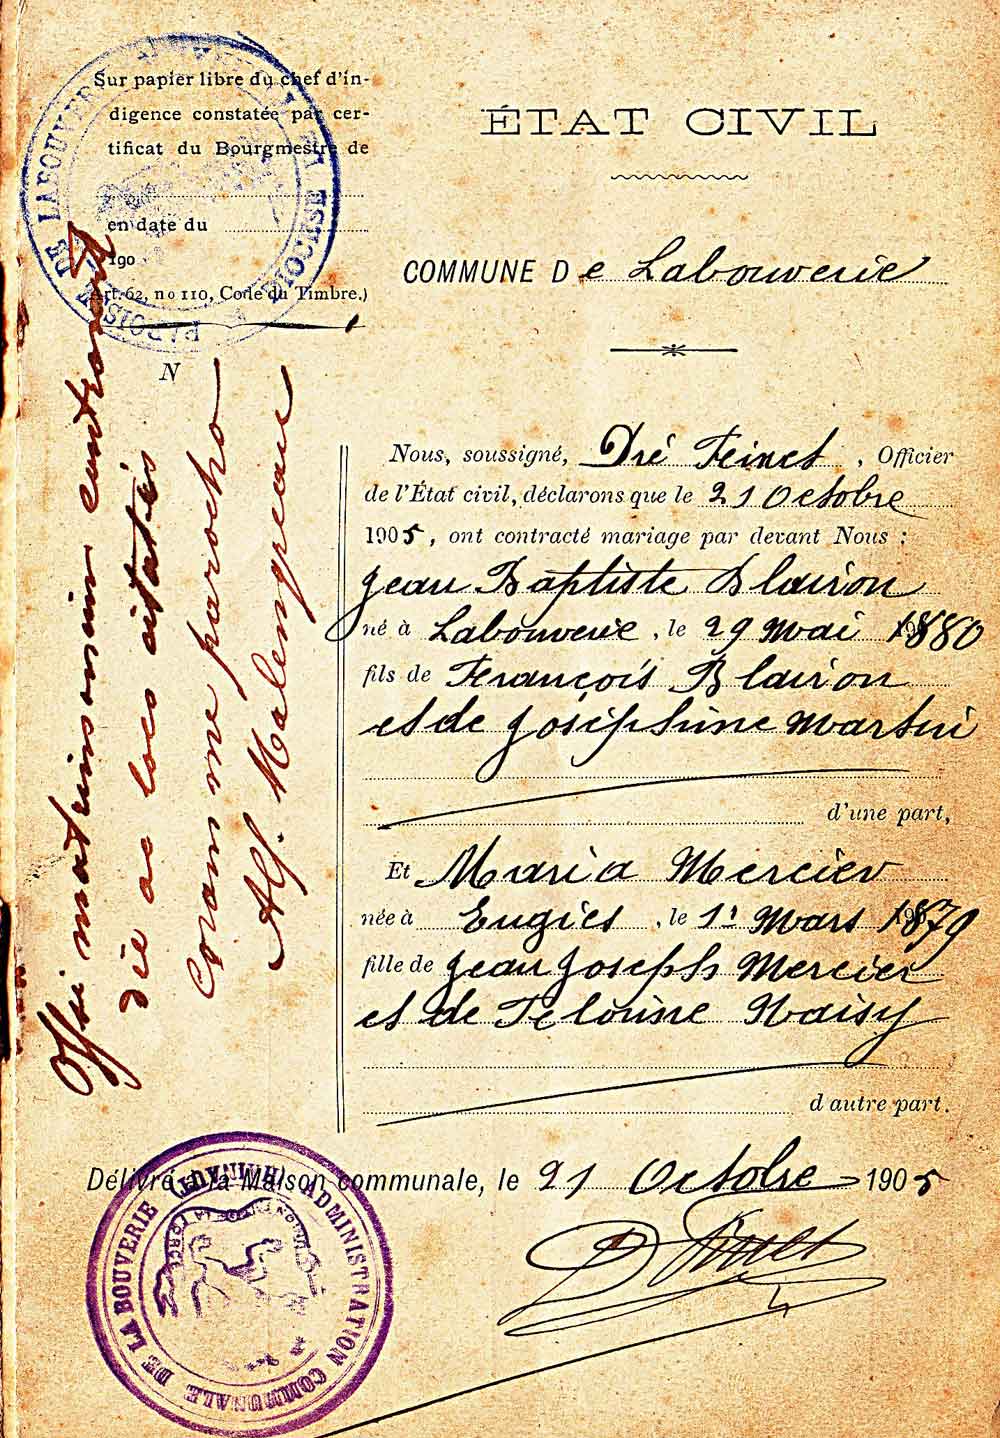 Sur papier libre du chef d'in-
digence constatée par cer-
tificat du Bourgmestre de
en date du
190
Art. 62, no 110, Code du Timbre.)
N
ÉTAT CIVIL
COMMUNE De Labouverie
Nous, soussigné, Dré Feinet, Officier
de l'État civil, déclarons que le 21 Octobre
1905, ont contracté mariage par devant Nous :
Jean Baptiste Blairon
né à Labouverie, le 29 Mai 1880
fils de François Blairon
et de Joséphine Martin
d'une part,
Et Maria Mercier
née à Eugies, le 1r Mars 1879
fille de Jean Joseph Mercier
et de
d'autre part.
Délivré à la Maison communale, le 21 Octobre 1905
matrimonium contraxerunt
die ac loco citatis
coram me parocho
Alf. Malengreau
ADMINISTRATION COMMUNALE DE LA BOUVERIE (HAINAUT)